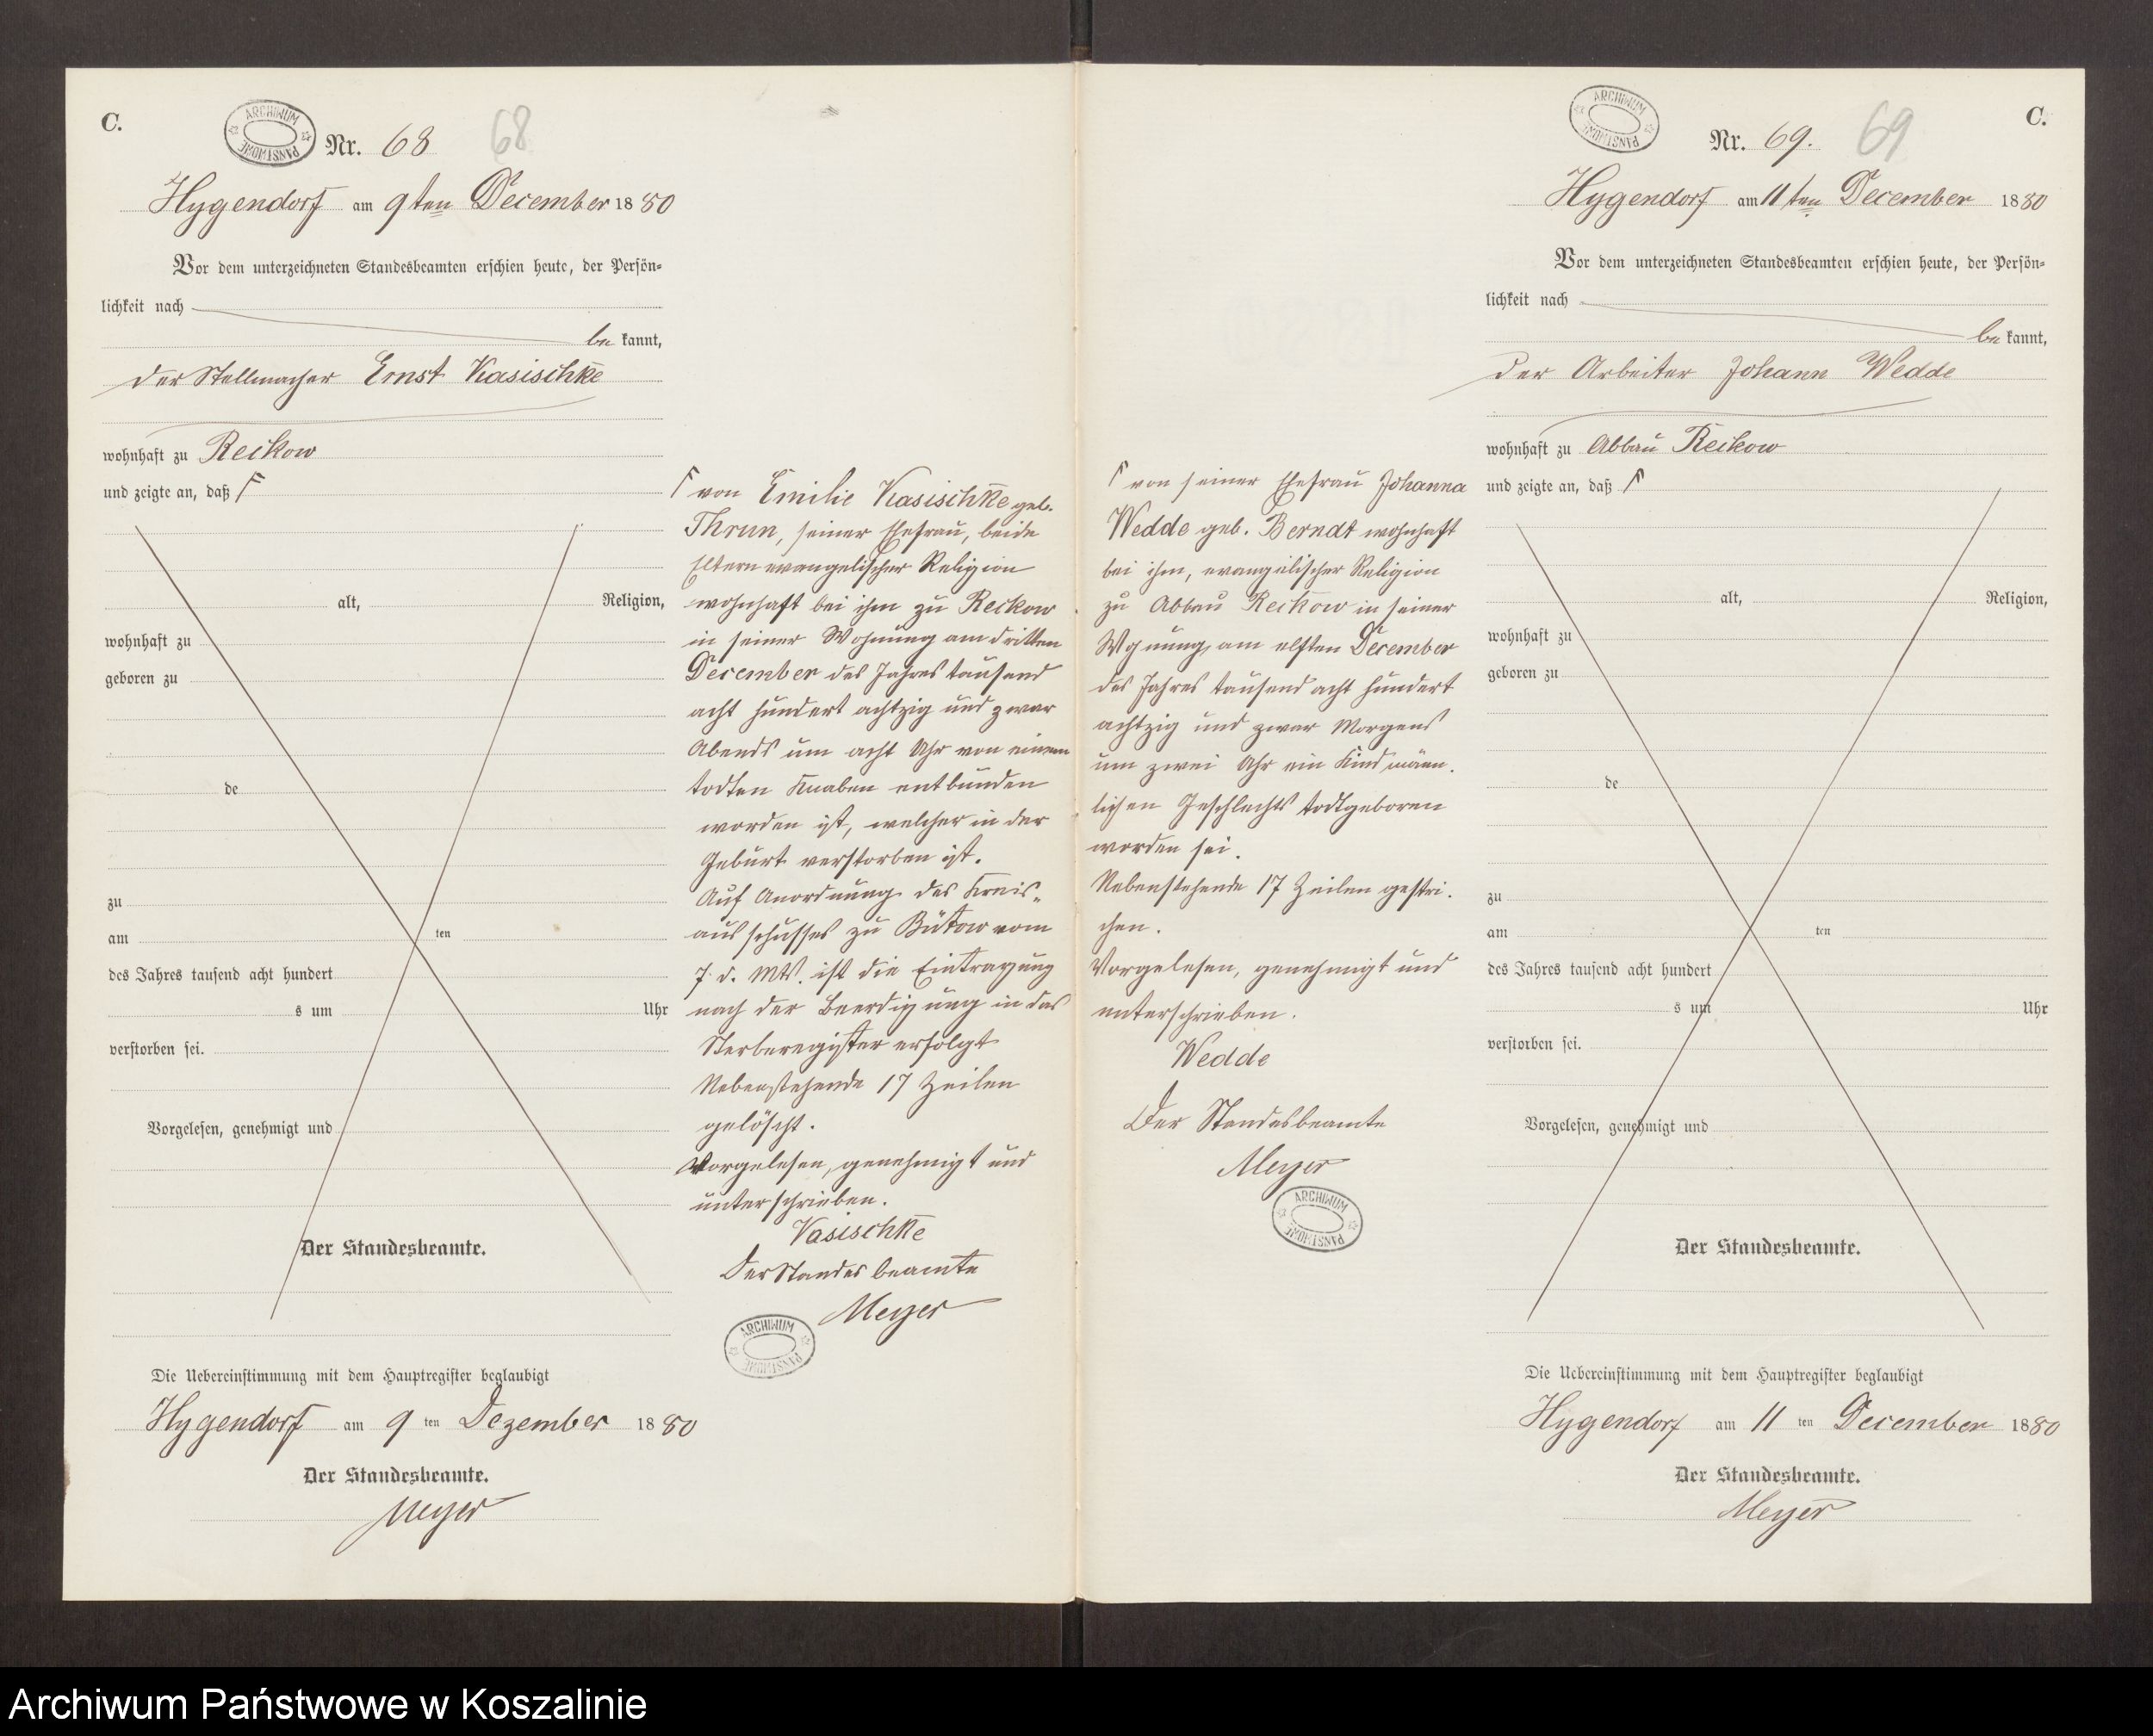 C.
ARCHIWUM PAŃSTWOWE
Nr. 68 68
Hygendorf am 9ten December 1880
Vor dem unterzeichneten Standesbeamten erschien heute, der Persön-
lichkeit nach
bekannt,
der Stellmacher Ernst Kasischke
wohnhaft zu Reckow
und zeigte an, daß
alt, Religion,
wohnhaft zu
geboren zu
de
zu
am ten
des Jahres tausend acht hundert
s um Uhr
verstorben sei.
Vorgelesen, genehmigt und
Der Standesbeamte.
Die Uebereinstimmung mit dem Hauptregister beglaubigt
Hygendorf am 9 ten Dezember 1880
Der Standesbeamte.
Meyer
von Emilie Kasischke geb.
Thrun, seiner Ehefrau, beide
Eltern evangelischer Religion
wohnhaft bei ihm zu Reckow
in seiner Wohnung am dritten
December des Jahres tausend
acht hundert achtzig und zwar
Abends um acht Uhr von einem
todten Knaben entbunden
worden ist, welcher in der
Geburt verstorben ist.
Auf Anordnung des Kreis-
ausschusses zu Bütow vom
7. d. Mts. ist die Eintragung
nach der Beerdigung in das
Sterberegister erfolgt
Nebenstehende 17 Zeilen
gelöscht.
Vorgelesen, genehmigt und
unterschrieben.
Kasischke
Der Standesbeamte
Meyer
ARCHIWUM PAŃSTWOWE
von seiner Ehefrau Johanna
Wedde geb. Berndt wohnhaft
bei ihm, evangelischer Religion
zu Abbau Reckow in seiner
Wgnung, am elften December
des Jahres tausend acht hundert
achtzig und zwar Morgens
um zwei Uhr ein Kind männ-
lichen Geschlechts todtgeboren
worden sei.
Nebenstehende 17 Zeilen gestri-
chen.
Vorgelesen, genehmigt und
unterschrieben.
Wedde
Der Standesbeamte
Meyer
ARCHIWUM PAŃSTWOWE
ARCHIWUM PAŃSTWOWE
C.
Nr. 69. 69
Hygendorf am 11ten December 1880
Vor dem unterzeichneten Standesbeamten erschien heute, der Persön-
lichkeit nach
bekannt,
Der Arbeiter Johann Wedde
wohnhaft zu Abbau Reckow
und zeigte an, daß
alt, Religion,
wohnhaft zu
geboren zu
de
zu
am ten
des Jahres tausend acht hundert
s um Uhr
verstorben sei.
Vorgelesen, genehmigt und
Der Standesbeamte.
Die Uebereinstimmung mit dem Hauptregister beglaubigt
Hygendorf am 11 ten December 1880
Der Standesbeamte.
Meyer
Archiwum Państwowe w Koszalinie